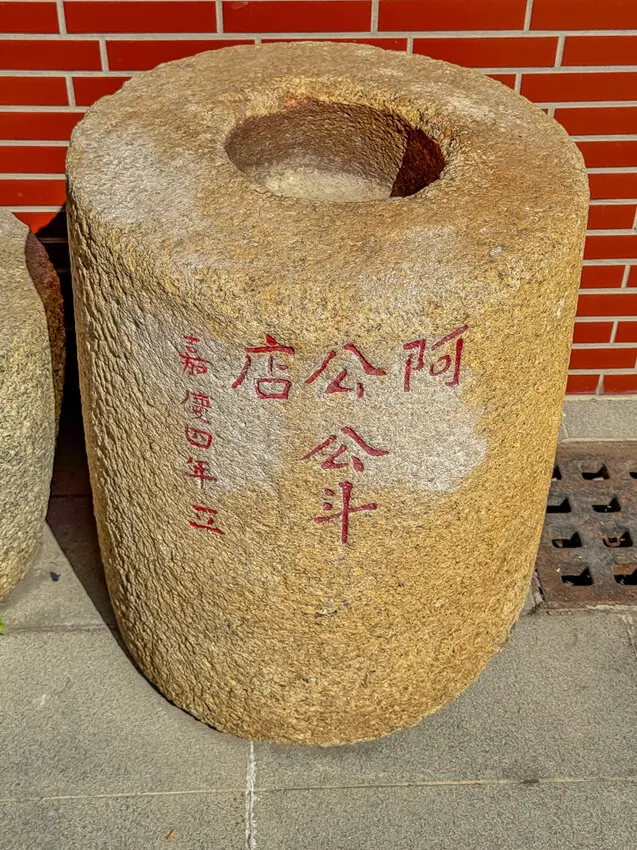 阿公店
公斗
嘉慶四年立